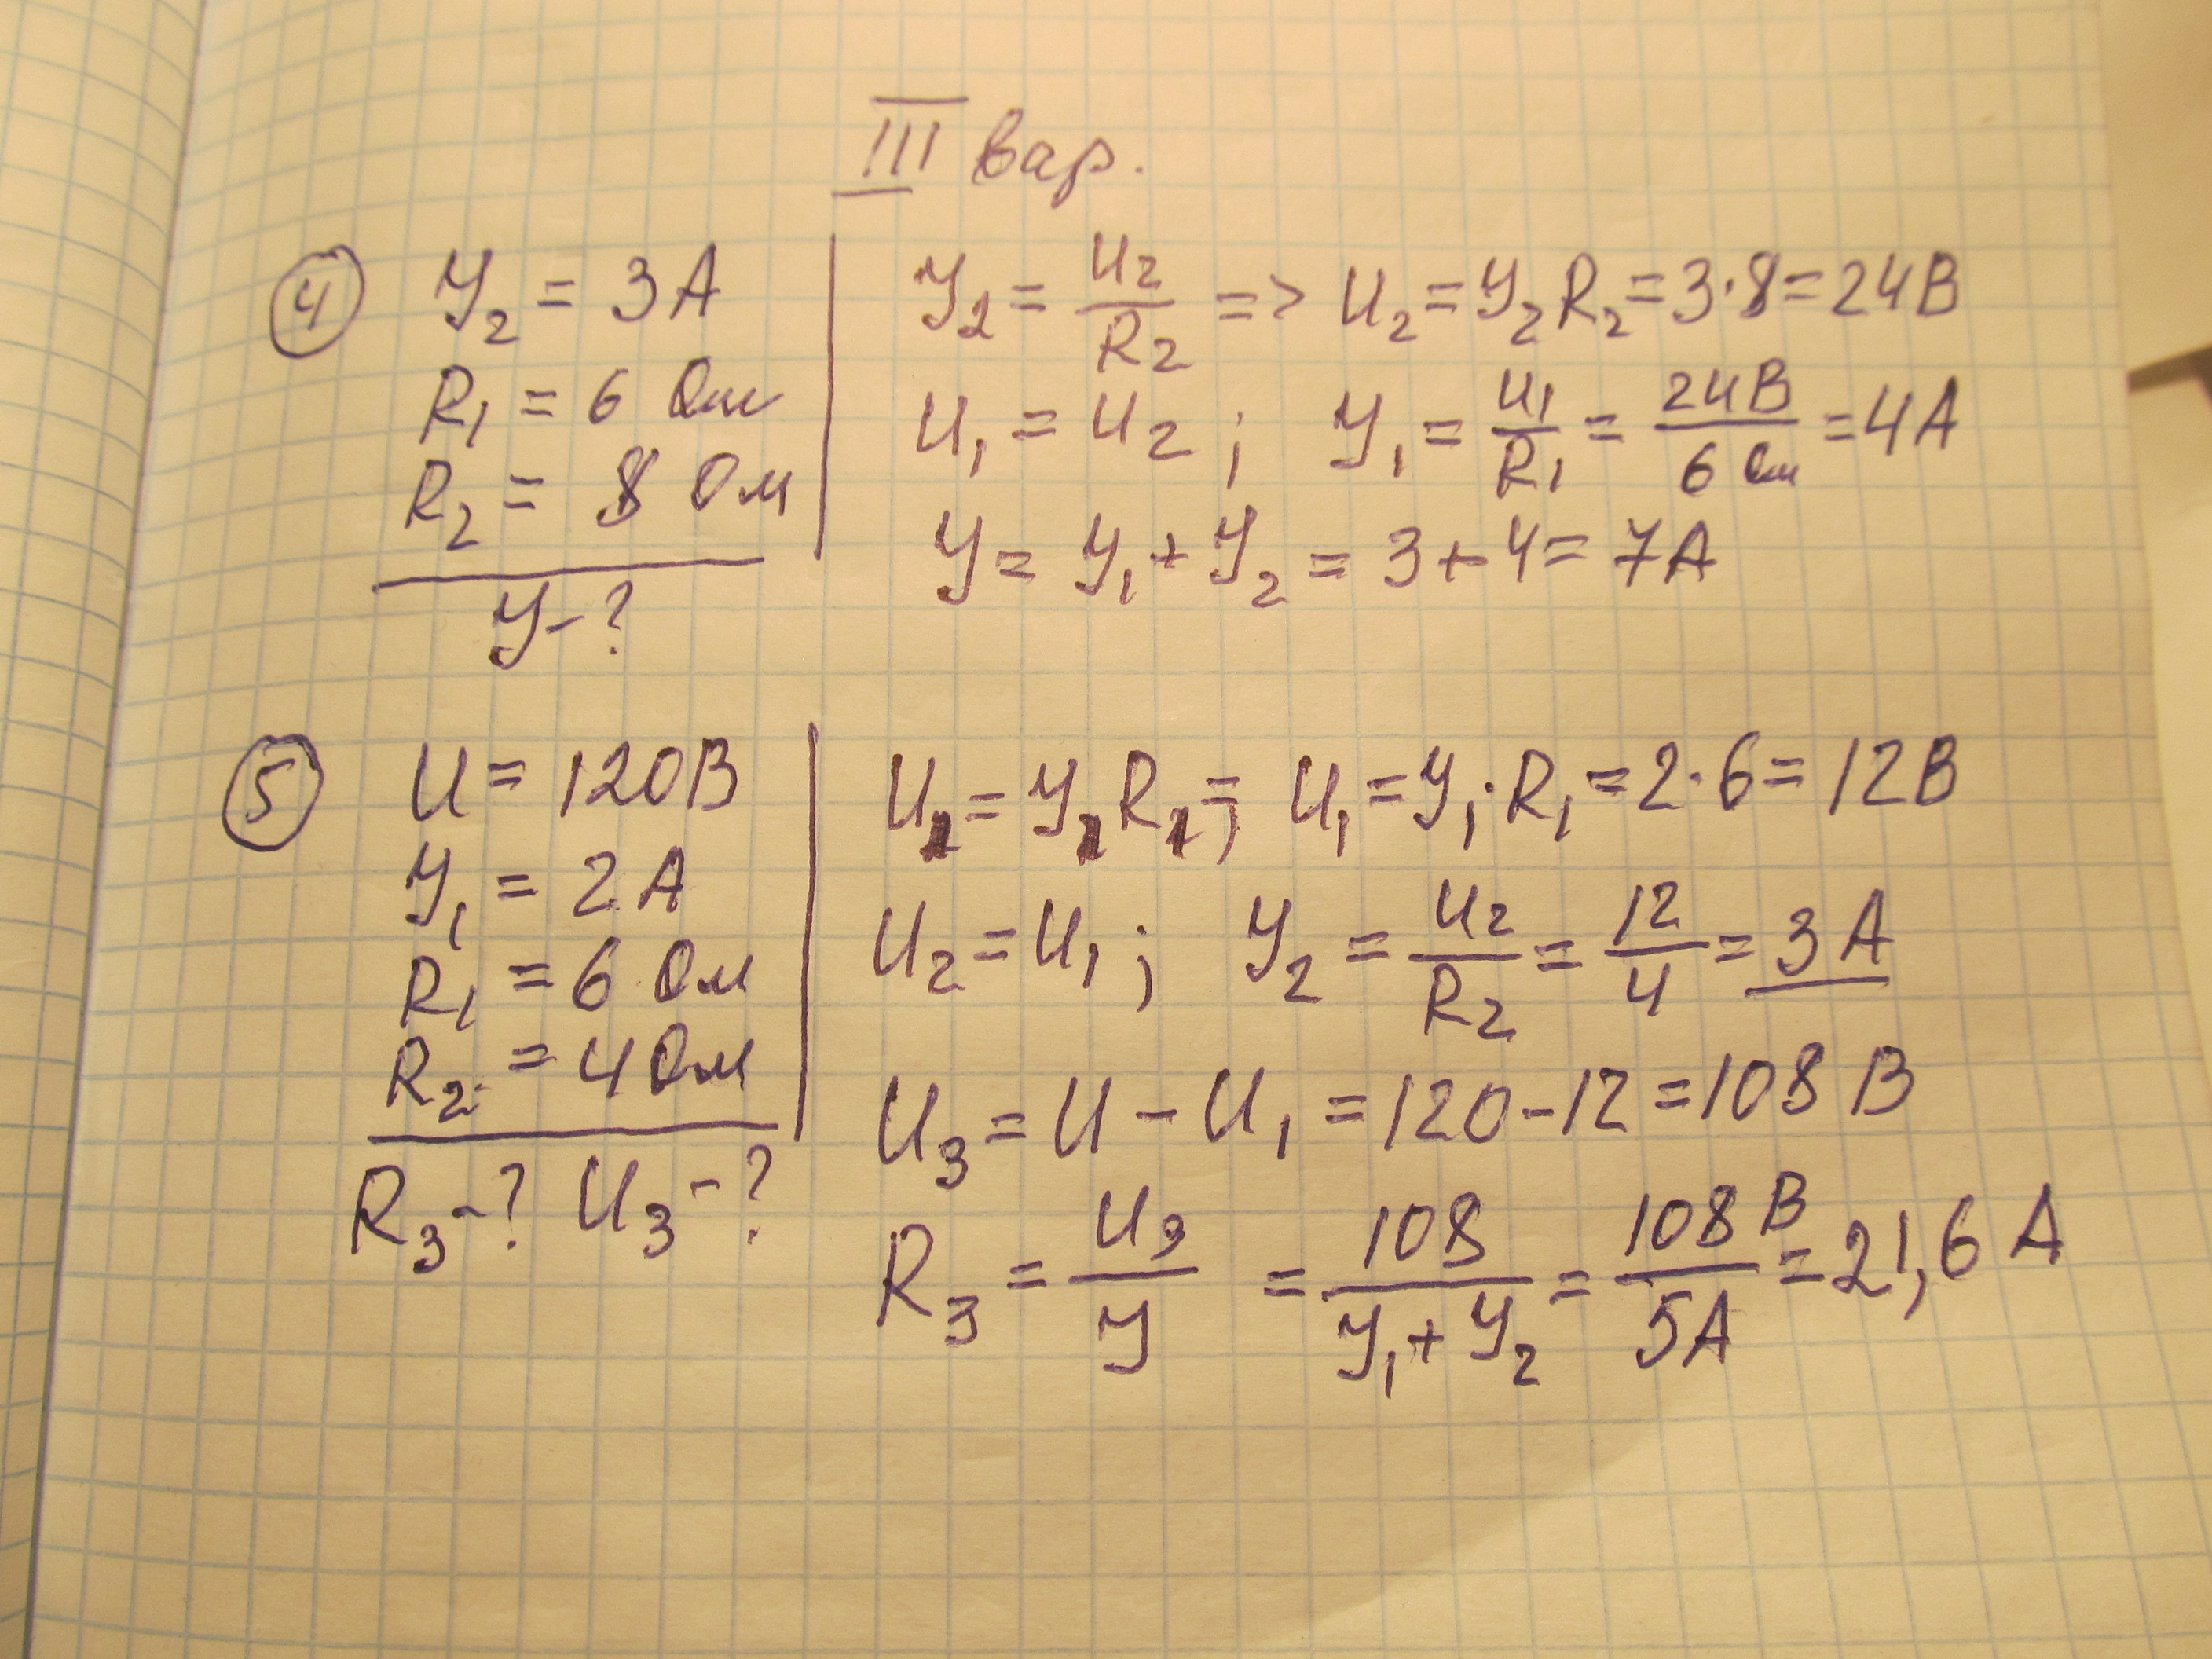 III вар.
④ У₂ = 3А
R₁ = 6 Ом
R₂ = 8 Ом
У-?
У₂ = U₂/R₂ => U₂ = У₂R₂ = 3·8 = 24В
U₁ = U₂ ; У₁ = U₁/R₁ = 24В/6 Ом = 4А
У = У₁ + У₂ = 3 + 4 = 7А
⑤ U = 120В
У₁ = 2А
R₁ = 6 Ом
R₂ = 4 Ом
R₃-? U₃-?
U₁ = У₁R₁ ; U₁ = У₁·R₁ = 2·6 = 12В
U₂ = U₁ ; У₂ = U₂/R₂ = 12/4 = 3А
U₃ = U - U₁ = 120 - 12 = 108 В
R₃ = U₃/У = 108/У₁+У₂ = 108 В/5А = 21,6 А